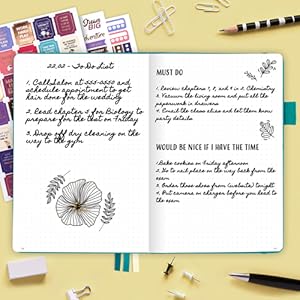 22.02 - To Do List
1. Call Salon at 555-5555 and
schedule appointment to get
hair done for the wedding
2. Read chapter 2 for Biology to
prepare for the test on Friday
3. Drop off dry cleaning on the
way to the gym
MUST DO
1. Review chapters 1, 2, and 4 in A Chemistry
2. Vacuum the living room and put all the
paperwork in drawers
3. Email the class alias and let them know
party details
WOULD BE NICE IF I HAVE THE TIME
1. Bake cookies on Friday afternoon
2. Go to nail place on the way back from the
exam
3. Order those shoes from (website) tonight
4. Put camera on charger before you head to
the exam